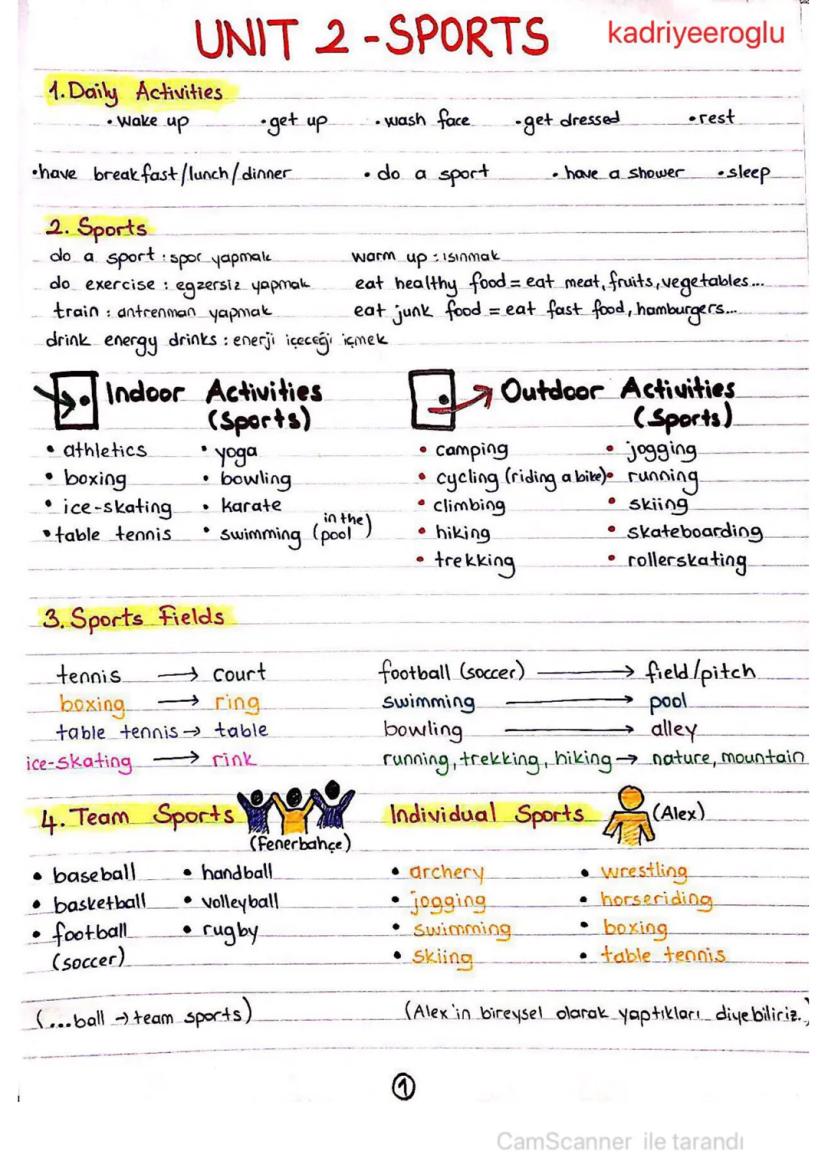 UNIT 2 - SPORTS
kadriyeeroglu
1. Daily Activities
• wake up • get up • wash face • get dressed • rest
• have breakfast/lunch/dinner • do a sport • have a shower • sleep
2. Sports
do a sport : spor yapmak warm up : ısınmak
do exercise : egzersiz yapmak eat healthy food = eat meat, fruits, vegetables...
train : antrenman yapmak eat junk food = eat fast food, hamburgers...
drink energy drinks : enerji içeceği içmek
Indoor Activities
(Sports)
• athletics • yoga
• boxing • bowling
• ice-skating • karate
• table tennis • swimming (in the pool)
Outdoor Activities
(Sports)
• camping • jogging
• cycling (riding a bike) • running
• climbing • skiing
• hiking • skateboarding
• trekking • rollerskating
3. Sports Fields
tennis → court football (soccer) → field/pitch
boxing → ring swimming → pool
table tennis → table bowling → alley
ice-skating → rink running, trekking, hiking → nature, mountain
4. Team Sports
(Fenerbahçe)
• baseball • handball
• basketball • volleyball
• football • rugby
(soccer)
(...ball → team sports)
Individual Sports (Alex)
• archery • wrestling
• jogging • horseriding
• swimming • boxing
• skiing • table tennis
(Alex'in bireysel olarak yaptıkları diyebiliriz.)
1
CamScanner ile tarandı